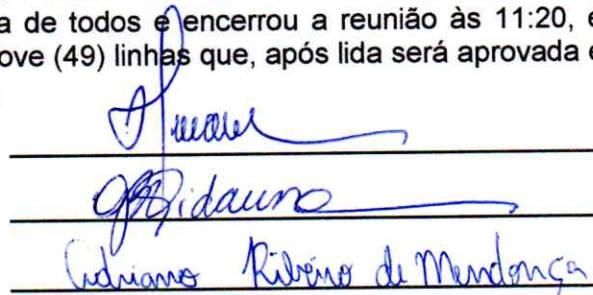 a de todos e encerrou a reunião às 11:20, e
ove (49) linhas que, após lida será aprovada e
Adriano Ribeiro de Mendonça